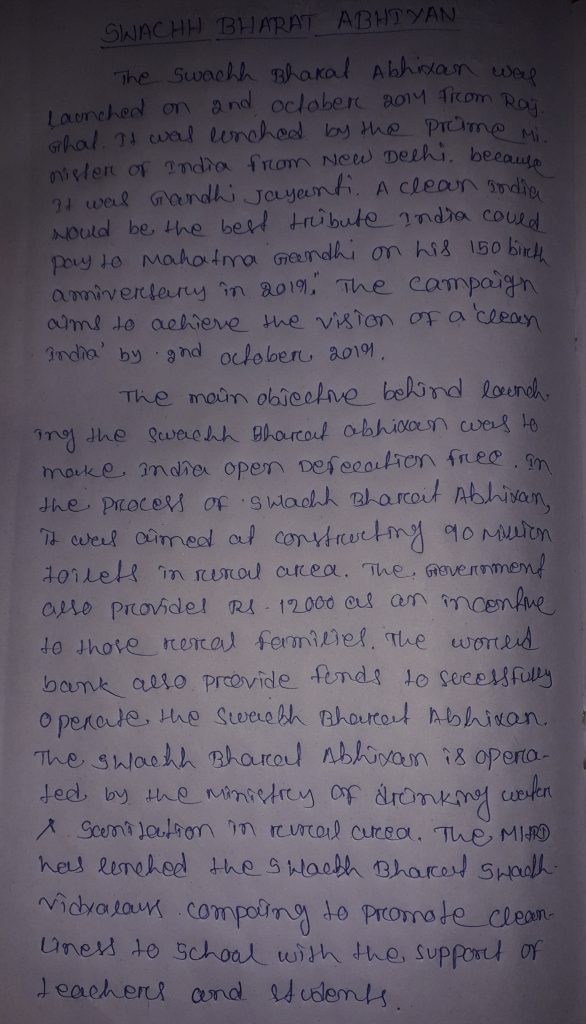 SWACHH BHARAT ABHIYAN
The Swachh Bharat Abhixan was
Launched on 2nd october 2014 from Raj
Ghat. It was lunched by the prime Mi-
nister of India from New Delhi. because
It was Gandhi Jayanti. A clean India
would be the best tribute India could
pay to Mahatma Gandhi on his 150 birth
anniversary in 2019." The campaign
aims to achieve the vision of a 'clean
India' by 2nd october 2019.
The main objective behind launch-
ing the Swachh Bharat abhixan was to
make India open Defecation free. In
the process of Swachh Bharat Abhixan,
it was aimed at constructing 90 Million
toilets in rural area. The Government
also provides RS. 12000 as an incentive
to those rural families. The world
bank also provide funds to secessfully
operate the Swachh Bharat Abhixan.
The Swachh Bharat Abhixan is opera-
ted by the ministry of drinking water
& Sanitation in rural area. The MHRD
has lenched the Swachh Bharat Swachh
Vidxalaus compaing to promote clean-
liness to School with the support of
teachers and students.